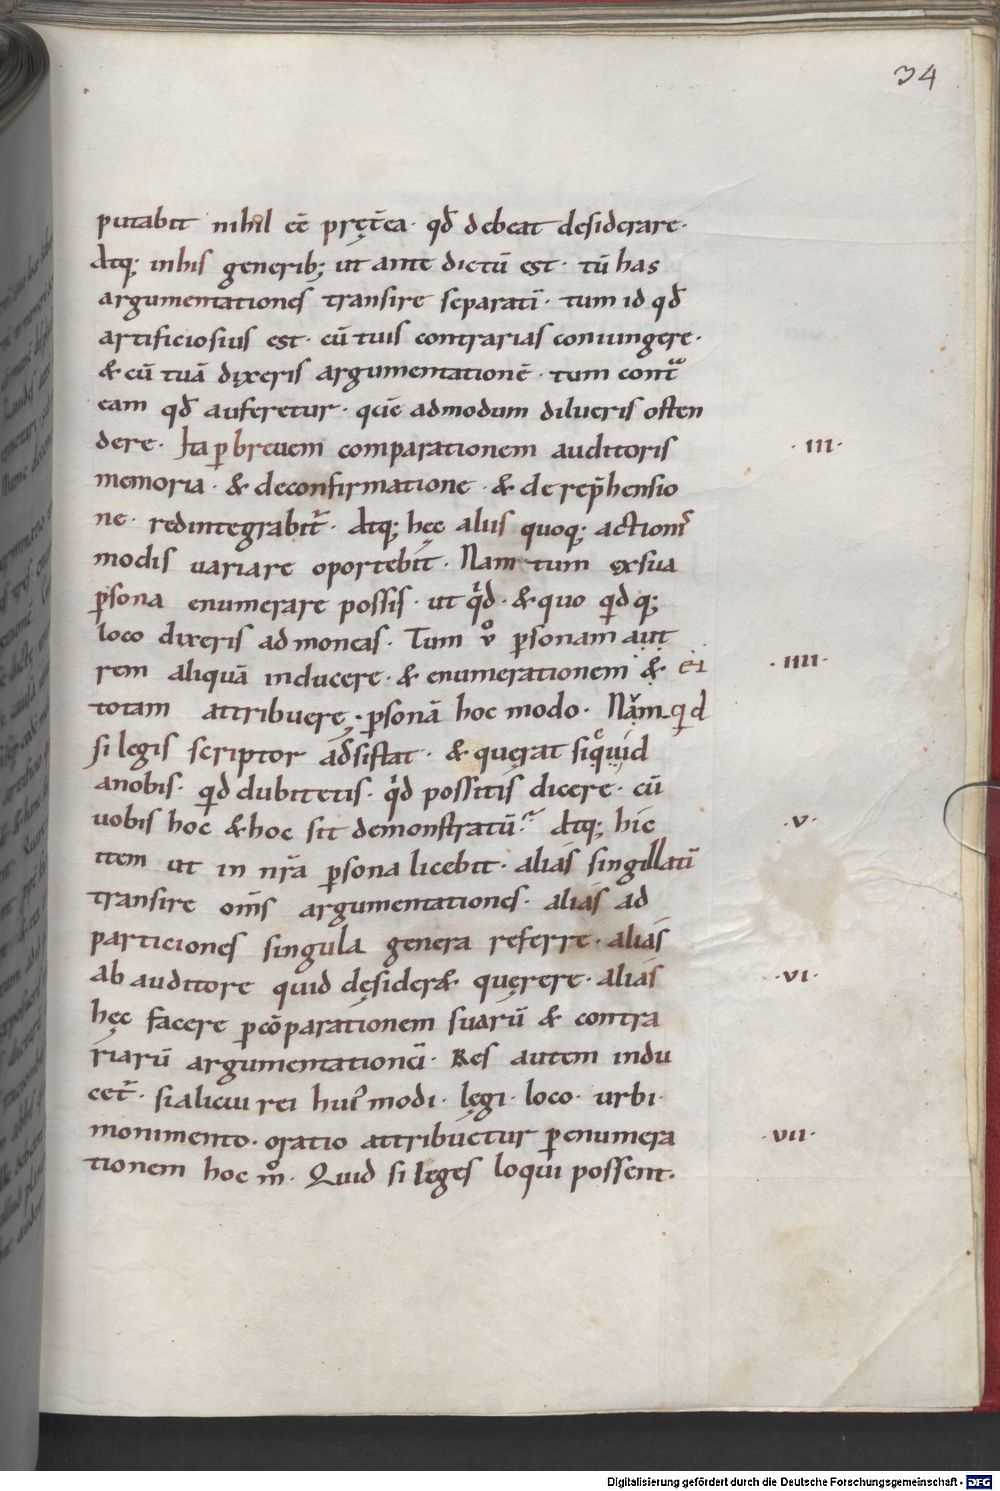 34
putabit nihil eē pręt̄ea · qđ debeat desiderare ·
Atq; inhis generib; ut ante dictū est · tū has
argumentationes transire separatī · tum id qđ
artificiosius est · cū tuis contrarias coniungere ·
& cū tuā dixeris argumentationē · tum contᷓ
eam qđ auferetur · qūe admodum dilueris osten
dere · Ita p̱ breuem comparationem auditoris · III ·
memoria · & deconfirmatione · & de rep̄hensio
ne · redintegrabit᷑ · Atq; hęc aliis quoq; actionis
modis uariare oportebit · Nam tum exsua
p̱sona enumerare possis · ut qͥd · & quo qͥdq;
loco dixeris admoneas · Tum ů p̱sonam aut
rem aliquā inducere · & enumerationem & ei · IIII ·
totam attribuere · p̱sonā hoc modo · Nam qͥd
si legis scriptor adsistat · & quęrat si quid
anobis · qͥd dubitetis · qͥd possitis dicere · cū
uobis hoc & hoc sit demonstratū · Atq; hic · V ·
item ut in nr̄a p̱sona licebit · aliás singillatī
transire om̄s argumentationes · aliás ad
particiones singula genera referre · aliás
ab auditore quid dęsider& · quęrere · aliás · VI ·
hęc facere p̱cōparationem suarū & contra
riarū argumentationū · Res autem indu
cet᷑ · si alicui rei hui᾽modi · lęgi · loco · urbi ·
monimento · oratio attribuetur p̱ enumera · VII ·
tionem hoc m̊ · Quid si leges loqui possent ·
Digitalisierung gefördert durch die Deutsche Forschungsgemeinschaft - DFG